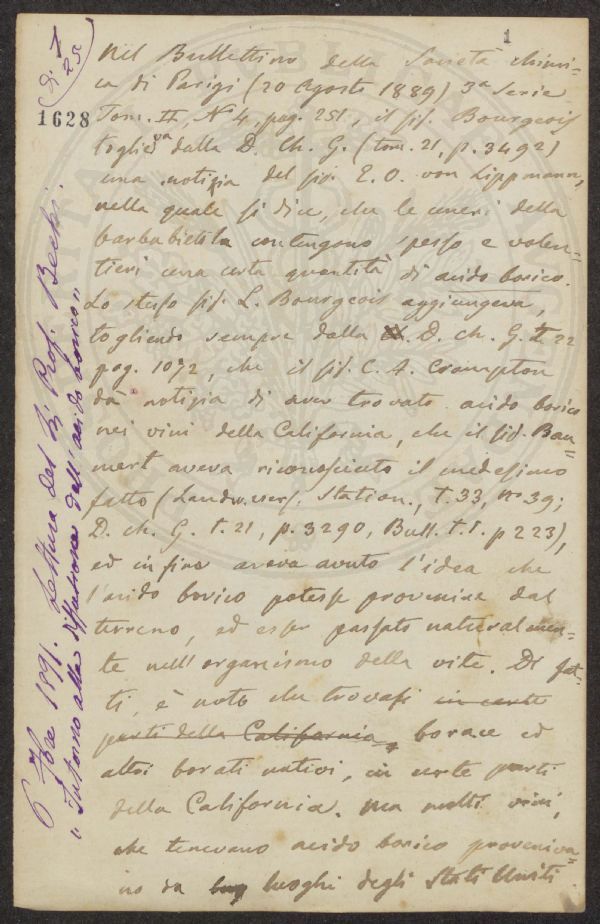 1
di 1
25
1628
6 Xbre 1891. Lettura del Sig. Prof. Bechi.
"Intorno alla diffusione dell'acido borico"
Nel Bullettino della Società chimi-
ca di Parigi (20 Agosto 1889) 3ª Serie
Tom. II, Nº 4, pag. 251, il sig. Bourgeois
toglieva dalla D. Ch. G. (tom. 21, p. 3492)
una notizia del sig. E. O. von Lippmann,
nella quale si dice, che le ceneri della
barbabietola contengono spesso e volen-
tieri una certa quantità di acido borico.
Lo stesso sig. L. Bourgeois aggiungeva,
togliendo sempre dalla D. Ch. G. T 22
pag. 1072, che il sig. C. A. Crampton
dà notizia di aver trovato acido borico
nei vini della California, che il sig. Bau-
mert aveva riconosciuto il medesimo
fatto (Landw. vers. Station., T. 33, nº 39;
D. ch. G. t. 21, p. 3290, Bull. t. I. p 223),
ed in fine aveva avuto l'idea che
l'acido borico potesse provenire dal
terreno, ed esser passato naturalmen-
te nell'organismo della vite. Di fat-
ti, è noto che trovasi in certe
parti della California, borace ed
altri borati nativi, in certe parti
della California. Ma molti vini,
che tenevano acido borico proveniva-
no da luoghi degli Stati Uniti